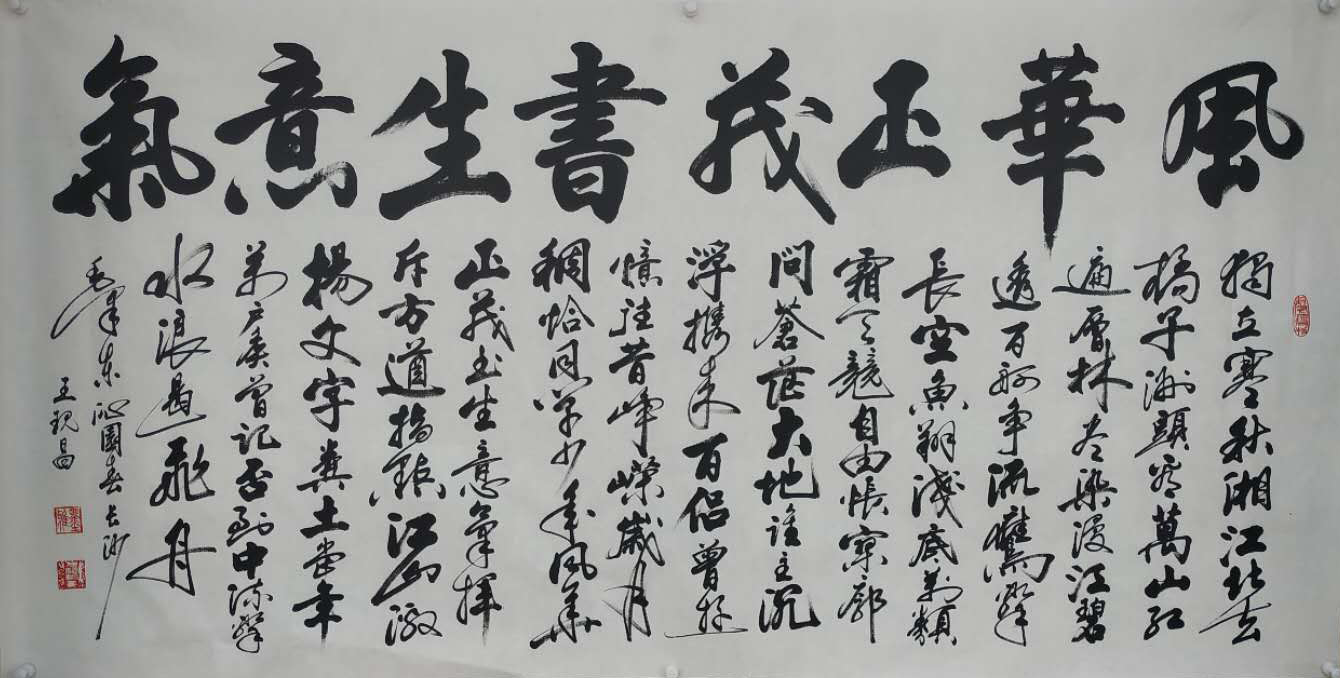 風華正茂書生意氣
獨立寒秋湘江北去
橘子洲頭看萬山紅
遍層林盡染漫江碧
透百舸爭流鷹擊
長空魚翔淺底萬類
霜天競自由悵寥廓
問蒼茫大地誰主沉
浮攜來百侶曾遊
憶往昔崢嶸歲月
稠恰同學少年風華
正茂书生意氣揮
斥方遒指點江山激
揚文字糞土當年
萬戶侯曾記否到中流擊
水浪遏飛舟
毛澤東沁園春長沙
王現昌